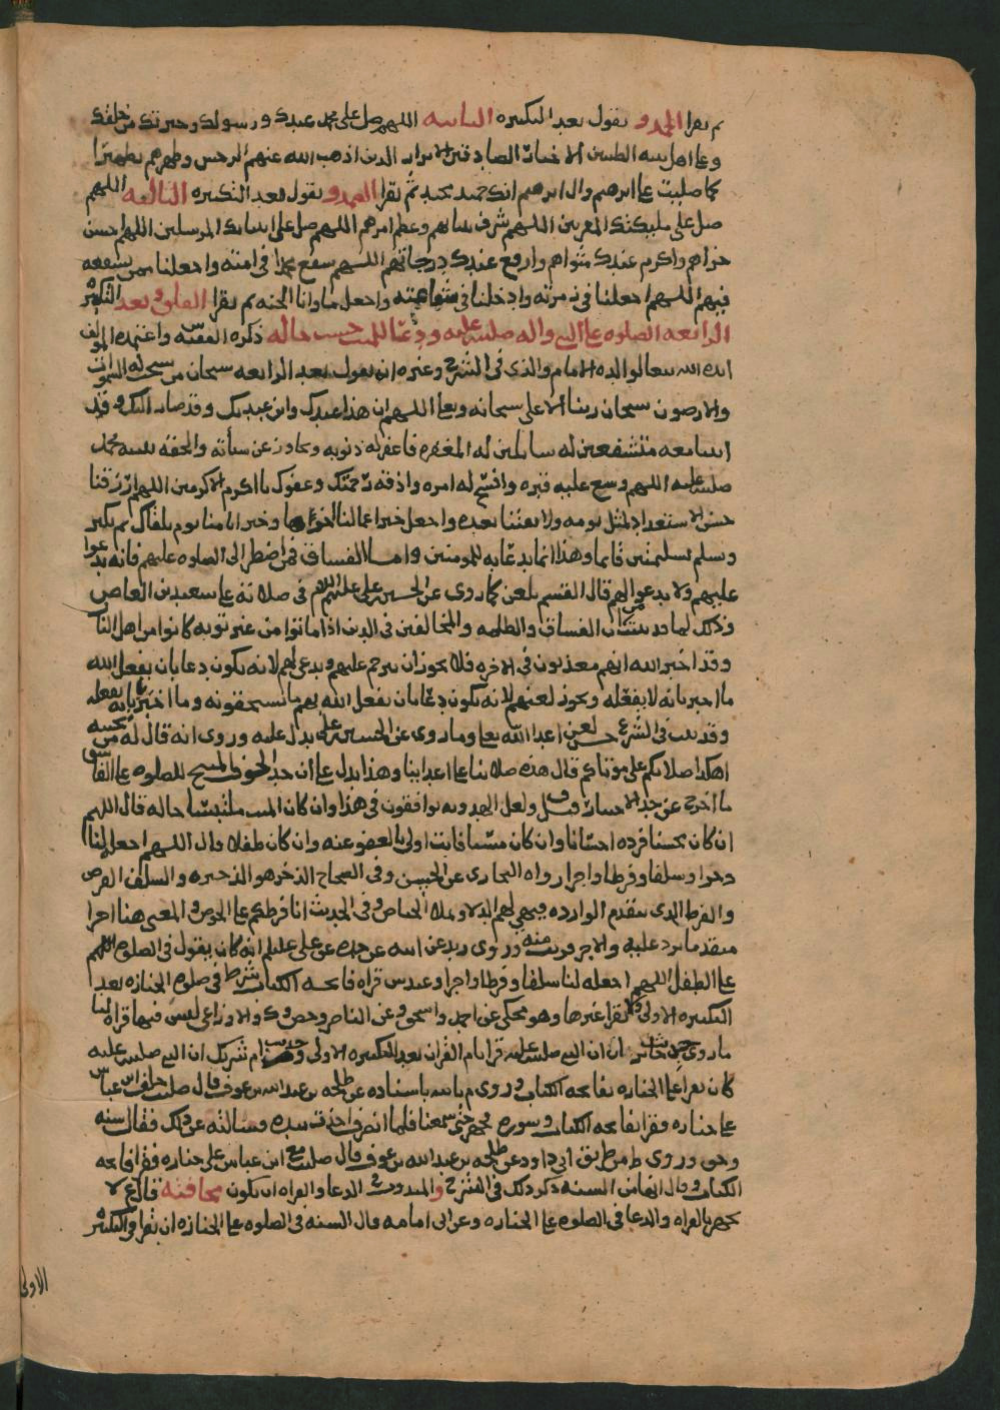 ثم تقرا الحمد و تقول بعد التكبيره الثانيه اللهم صل على محمد عبدك ورسولك وخيرتك من خلقك
وعلى اهل بيته الطيبين الاخيار الصادقين الابرار الذين اذهب الله عنهم الرجس وطهرهم تطهيرا
كما صليت على ابرهيم وال ابرهيم انك حميد مجيد ثم تقرا الصمد و تقول بعد التكبيره الثالثه اللهم
صل على مليكتك المقربين اللهم شرف بنيانهم وعظم امرهم اللهم صل على انبيائك المرسلين اللهم احسن
جزاهم واكرم عندك مثواهم وارفع عندك درجاتهم اللهم شفع محمدا في امته واجعلنا ممن يشفعه
فيهم اللهم اجعلنا في زمرته وادخلنا في شفاعته واجعل ماوانا الجنه ثم تقرا الفلق و بعد التكبيره
الرابعه الصلوه على النبي واله صلى الله عليه ودعا للميت حسب حاله ذكره الفقيه س واعتمده المولف
ايده الله تعالى لوالده الامام والذي في الشرح وغيره ان يقول بعد الرابعه سبحان من سبحت له السموات
والارضون سبحان ربنا الاعلى سبحانه وتعالى اللهم ان هذا عبدك وابن عبديك وقد صار اليك وقد
اتيناك معه متشفعين له سايلين له المغفره فاغفر له ذنوبه وتجاوز عن سيأته والحقه بنبيه محمد
صلى الله عليه اللهم وسع عليه قبره وافسح له امره واذقه رحمتك وعفوك يا اكرم الاكرمين اللهم ارزقنا
حسن الاستعداد لمثل يومه ولا تفتنا بعده واجعل خير اعمالنا خواتمها وخير ايامنا يوم نلقاك ثم يكبر
ويسلم تسليمتين قايما وهذا انما يدعا به للمومنين واما الفساق فمن اضطر الى الصلوه عليهم فانه يدعوا
عليهم ولا يدعو لهم قال القسم يلعن كما روي عن الحسين بن علي عليهم السلام في صلاته على سعيد بن العاص
وذلك لما قد ثبت من ان الفساق والظلمه والمخالفين في الدين اذا ماتوا من غير توبه كانوا من اهل النار
وقد اخبر الله انهم معذبون في الاخره فلا يجوز ان نترحم عليهم ويدعى لهم لانه يكون دعا بان يفعل الله
ما اخبر بانه لا يفعله ويجوز لعنهم لانه يكون دعا بان يفعل الله بهم ما يستحقونه وما اخبر بانه يفعله
وقد ثبت في الشرع حسن لعن اعدا الله تعالى وما روي عن الحسين بن علي يدل عليه وروي انه قال له من بجنبه
اهكذا صلاتكم على موتاكم قال هذه صلاتنا على اعدائنا وهذا يدل على ان حد الخوف المبيح للصلوه على الفاسق
ما اخرج عن حد الاختيار وقيل ولعل الهدويه يوافقون في هذا وان كان الميت ملتبسا حاله قال اللهم
ان كان محسنا فزده احسانا وان كان مسيا فانت اولى بالعفو عنه وان كان طفلا قال اللهم اجعله لنا
ذخرا وسلفا وفرطا واجرا رواه البخاري عن الحسن وفي الصحاح الذخر هو الذخيره والسلف القرض
والفرط الذي يتقدم الوارده فيهيي لهم الدلا ويملا الحياض وفي الحديث انا فرطكم على الحوض والمعنى هنا اجرا
متقدما نرد عليه والاجر قريب منه وروى زيد عن ابيه عن جده عن علي عليلم انه كان يقول في الصلوه
على الطفل اللهم اجعله لنا سلفا وفرطا واجرا وعند س قراه فاتحه الكتاب شرط في صلوه الجنازه بعد
التكبيره الاولى ولا تقرا غيرها وهو محكي عن احمد واسحق وعن الناصر وحص وك والاوزاعي ليس فيها قراه لنا
ما روى جابر ان النبي صلى الله عليه قرا بام القران بعد التكبيره الاولى وحديث ام شريك ان النبي صلى الله عليه
كان يقرا على الجنازه بفاتحه الكتاب وروى م بالله باسناده عن طلحه بن عبد الله بن عوف قال صليت خلف ابن عباس
على جنازه فقرا بفاتحه الكتاب وسوره فجهر حتى سمعنا فلما انصرف اخذت بيده وسالته عن ذلك فقال سنه
وحق وروى ط من طريق ابي داود عن طلحه بن عبد الله بن عوف قال صليت مع ابن عباس على جنازه فقرا فاتحه
الكتاب وقال انها من السنه ذكر ذلك في الشرح والمندوب في الدعا والقراه ان تكون مخافته قال ع لا
يجهر بالقراه والدعا في الصلوه على الجنازه وعن ابي امامه قال السنه في الصلوه على الجنازه ان تقرا في التكبيره
الاولى